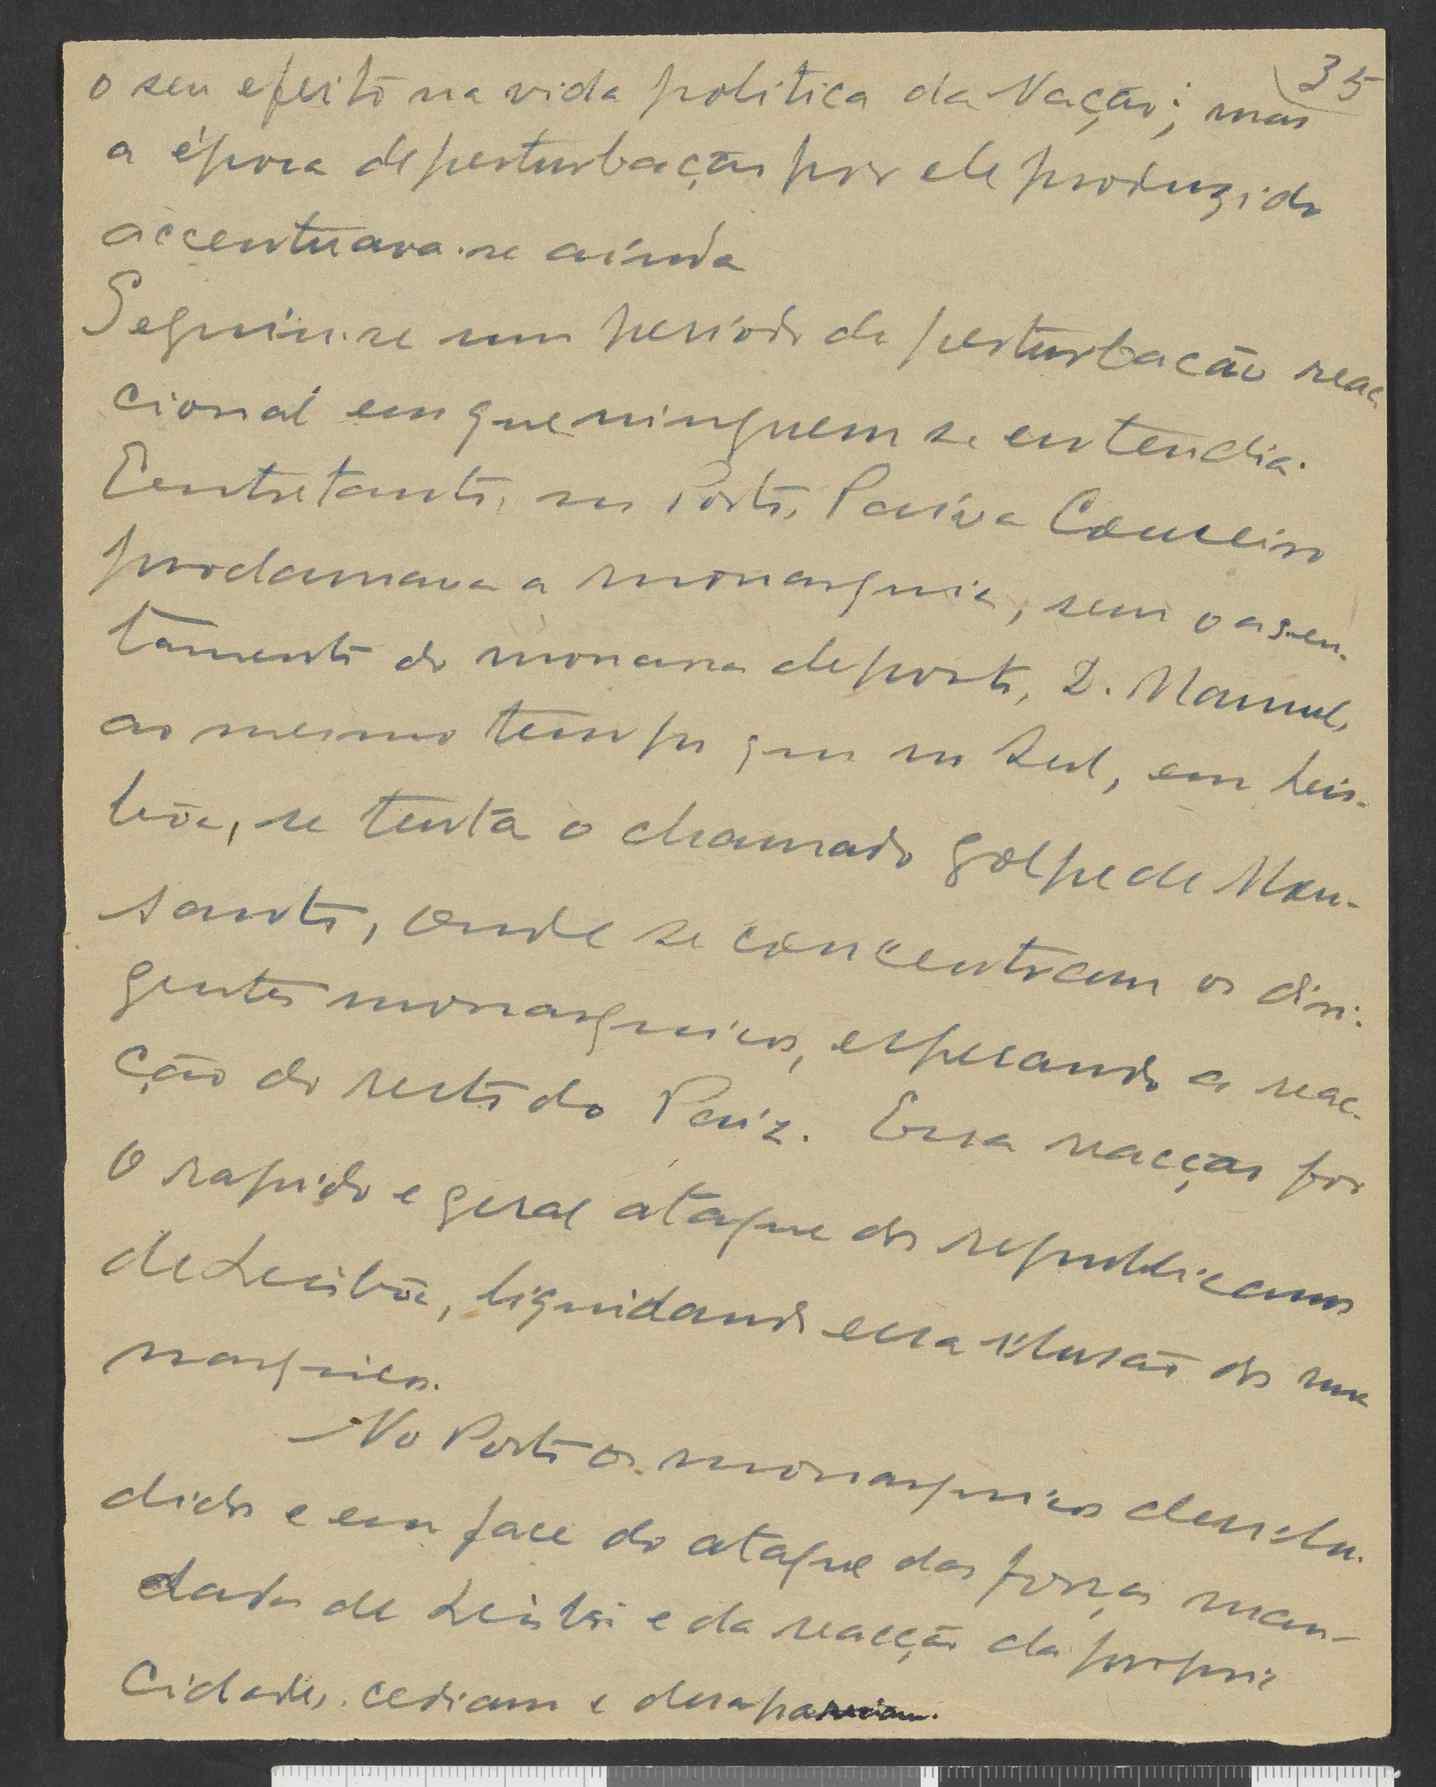 35
o seu efeito na vida politica da Nação; mas
a época de perturbação por ele produzido
accentuava-se ainda
Seguiu-se um periodo de perturbacão reac
cional em que ninguem se entendia.
Eentretanto, no Porto, Paiva Couceiro
proclamava a monarquia, sem o assen-
tamento do monarca deposto, D. Manuel,
ao mesmo tempo que no Sul, em Lis-
bôa, se tenta o chamado golpe de Mon-
santo, onde se concentram os diri-
gentes monarquicos, esperando a reac-
ção do resto do Paiz. Essa reacção foi
O rapido e geral ataque dos republicanos
de Lisbôa, liquidando essa ilusão dos mo
narquicos.
No Porto os monarquicos desilu-
didos e em face do ataque das forças man-
dadas de Lisbôa e da reacção da propria
Cidade, cediam e desapareciam.